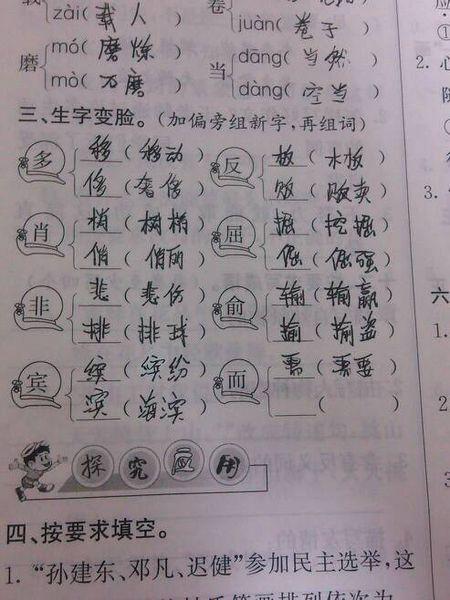 zài(载人) juàn(卷子)
mó(磨炼) dāng(当然)
磨 当
mò(石磨) dàng(空当)
三、生字变脸。(加偏旁组新字,再组词)
多 移(移动) 反 板(木板)
侈(奢侈) 贩(贩卖)
肖 梢(树梢) 屈 掘(挖掘)
俏(俏丽) 倔(倔强)
非 悲(悲伤) 俞 输(输赢)
排(排球) 揄(揄盗)
宾 缤(缤纷) 而 需(需要)
滨(海滨) ( )
探究应用
四、按要求填空。
1.“孙建东、邓凡、迟健”参加民主选举,这